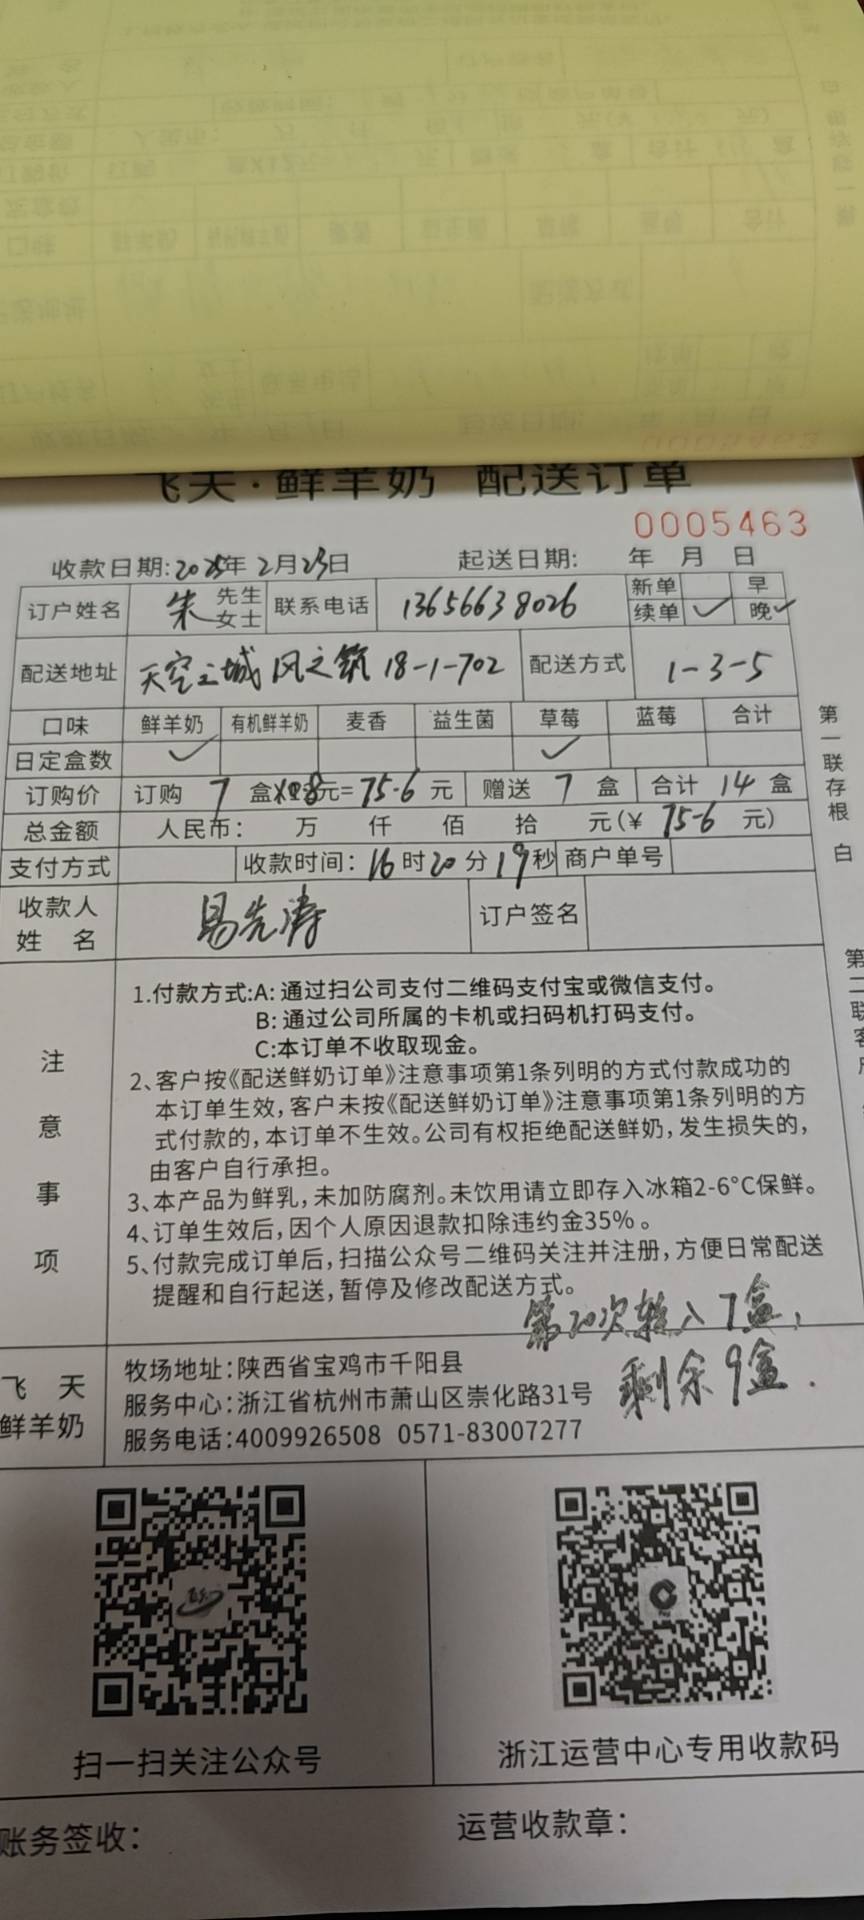 飞天·鲜羊奶 配送订单
0005463
收款日期:2025年2月23日 起送日期: 年 月 日
订户姓名 朱 先生 女士 联系电话 13656638026 新单 早
续单 ✓ 晚 ✓
配送地址 天空之城风之筑18-1-702 配送方式 1-3-5
口味 鲜羊奶 有机鲜羊奶 麦香 益生菌 草莓 蓝莓 合计
日定盒数 ✓ ✓
订购价 订购 7 盒X 元=75.6元 赠送 7 盒 合计 14 盒
总金额 人民币: 万 仟 佰 拾 元(¥ 75.6 元)
支付方式 收款时间: 16时20分19秒 商户单号
收款人姓名 易先涛 订户签名
注意事项
1.付款方式:A:通过扫公司支付二维码支付宝或微信支付。
B:通过公司所属的卡机或扫码机打码支付。
C:本订单不收取现金。
2、客户按《配送鲜奶订单》注意事项第1条列明的方式付款成功的
本订单生效,客户未按《配送鲜奶订单》注意事项第1条列明的方
式付款的,本订单不生效。公司有权拒绝配送鲜奶,发生损失的,
由客户自行承担。
3、本产品为鲜乳,未加防腐剂。未饮用请立即存入冰箱2-6°C保鲜。
4、订单生效后,因个人原因退款扣除违约金35%。
5、付款完成订单后,扫描公众号二维码关注并注册,方便日常配送
提醒和自行起送,暂停及修改配送方式。
第20次转入7盒,
剩余9盒.
飞天
鲜羊奶
牧场地址:陕西省宝鸡市千阳县
服务中心:浙江省杭州市萧山区崇化路31号
服务电话:4009926508 0571-83007277
扫一扫关注公众号
浙江运营中心专用收款码
账务签收:
运营收款章:
第一联存根 白
第二联客